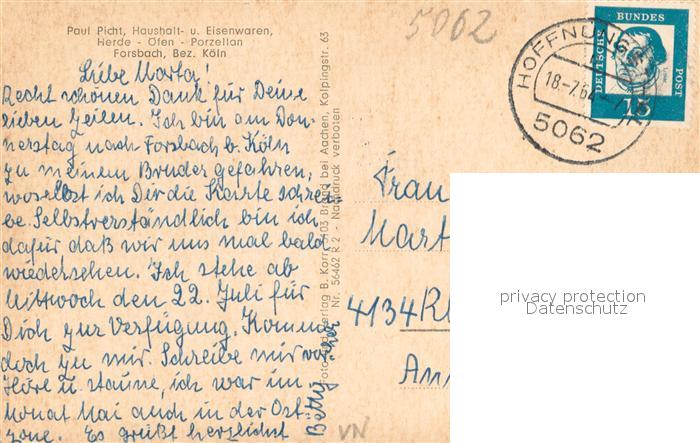 Paul Picht, Haushalt- u. Eisenwaren,
Herde - Öfen - Porzellan
Forsbach, Bez. Köln
5062
Liebe Marta!
Recht schönen Dank für Deine
lieben Zeilen. Ich bin am Don-
nerstag nach Forsbach b. Köln
zu meinem Bruder gefahren,
woselbst ich Dir die Karte schrei-
be. Selbstverständlich bin ich
dafür daß wir uns mal bald
wiedersehen. Ich stehe ab
Mittwoch den 22. Juli für
Dich zur Verfügung. Komme
doch zu mir. Schreibe mir vorher
Höre u. staune, ich war im
Monat Mai auch in der Ost-
zone. Es grüßt herzlichst
Betty
Verlag B. Korr, 5103 Brand bei Aachen, Kolpingstr. 63
Nr. 56462 R 2 - Nachdruck verboten
HOFFNUNGSTHAL
18.-7.64
5062
DEUTSCHE
BUNDES
POST
15
Frau
Mart
4134 Rh
privacy protection
Datenschutz
VN